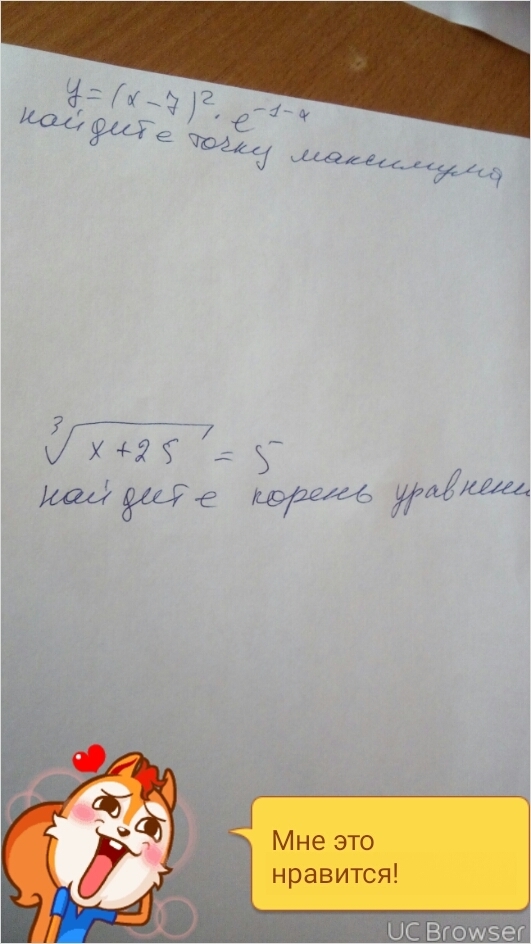 y = (x - 7)² · e^(-1-x)
найдите точку максимума
³√(x + 25) = 5
найдите корень уравнени
Мне это
нравится!
UC Browser